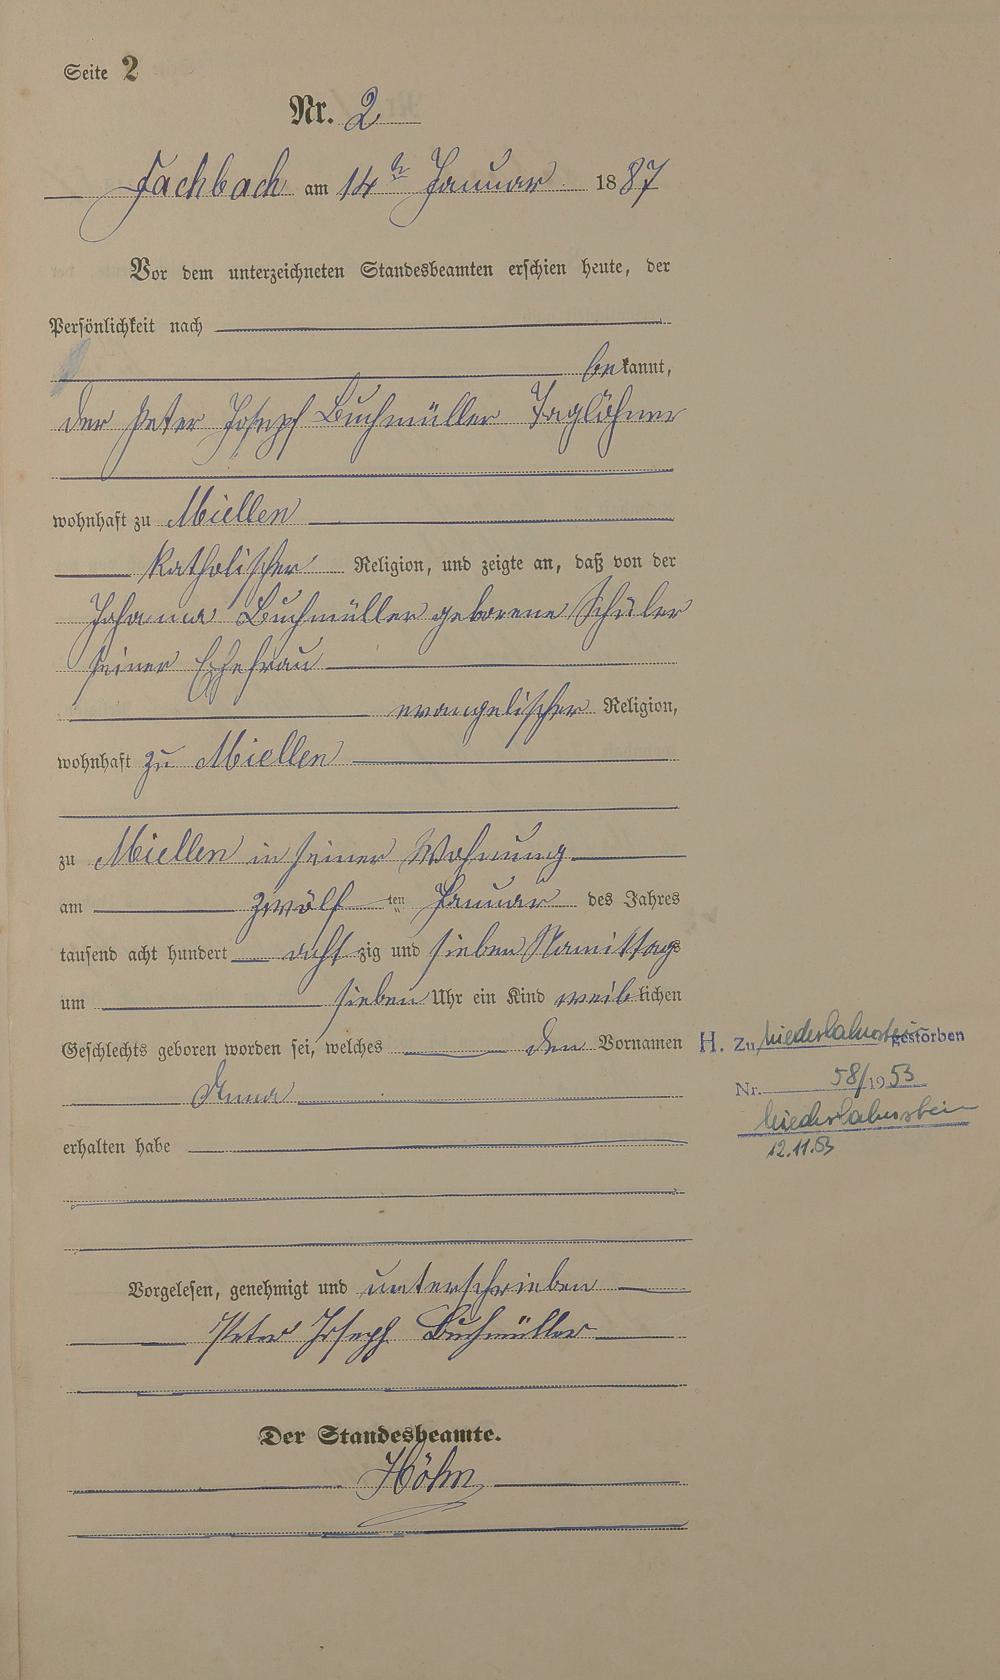 Seite 2
Nr. 2
Fachbach am 14ten Januar 1887
Vor dem unterzeichneten Standesbeamten erschien heute, der
Persönlichkeit nach
bekannt,
der Peter Joseph Buchmüller Taglöhner
wohnhaft zu Miellen
katholischer Religion, und zeigte an, daß von der
Johanna Buchmüller geborene Schüler
seiner Ehefrau
evangelischer Religion,
wohnhaft zu Miellen
zu Miellen in seiner Wohnung
am zwölf ten Januar des Jahres
tausend acht hundert acht zig und sieben Namittags
um sieben Uhr ein Kind weiblichen
Geschlechts geboren worden sei, welches den Vornamen
Anna
erhalten habe
Vorgelesen, genehmigt und unterschrieben
Peter Joseph Buchmüller
Der Standesbeamte.
Höhn
H. Zu Niederlahnstein gestorben
Nr. 58/1953
Niederlahnstein
12.11.53